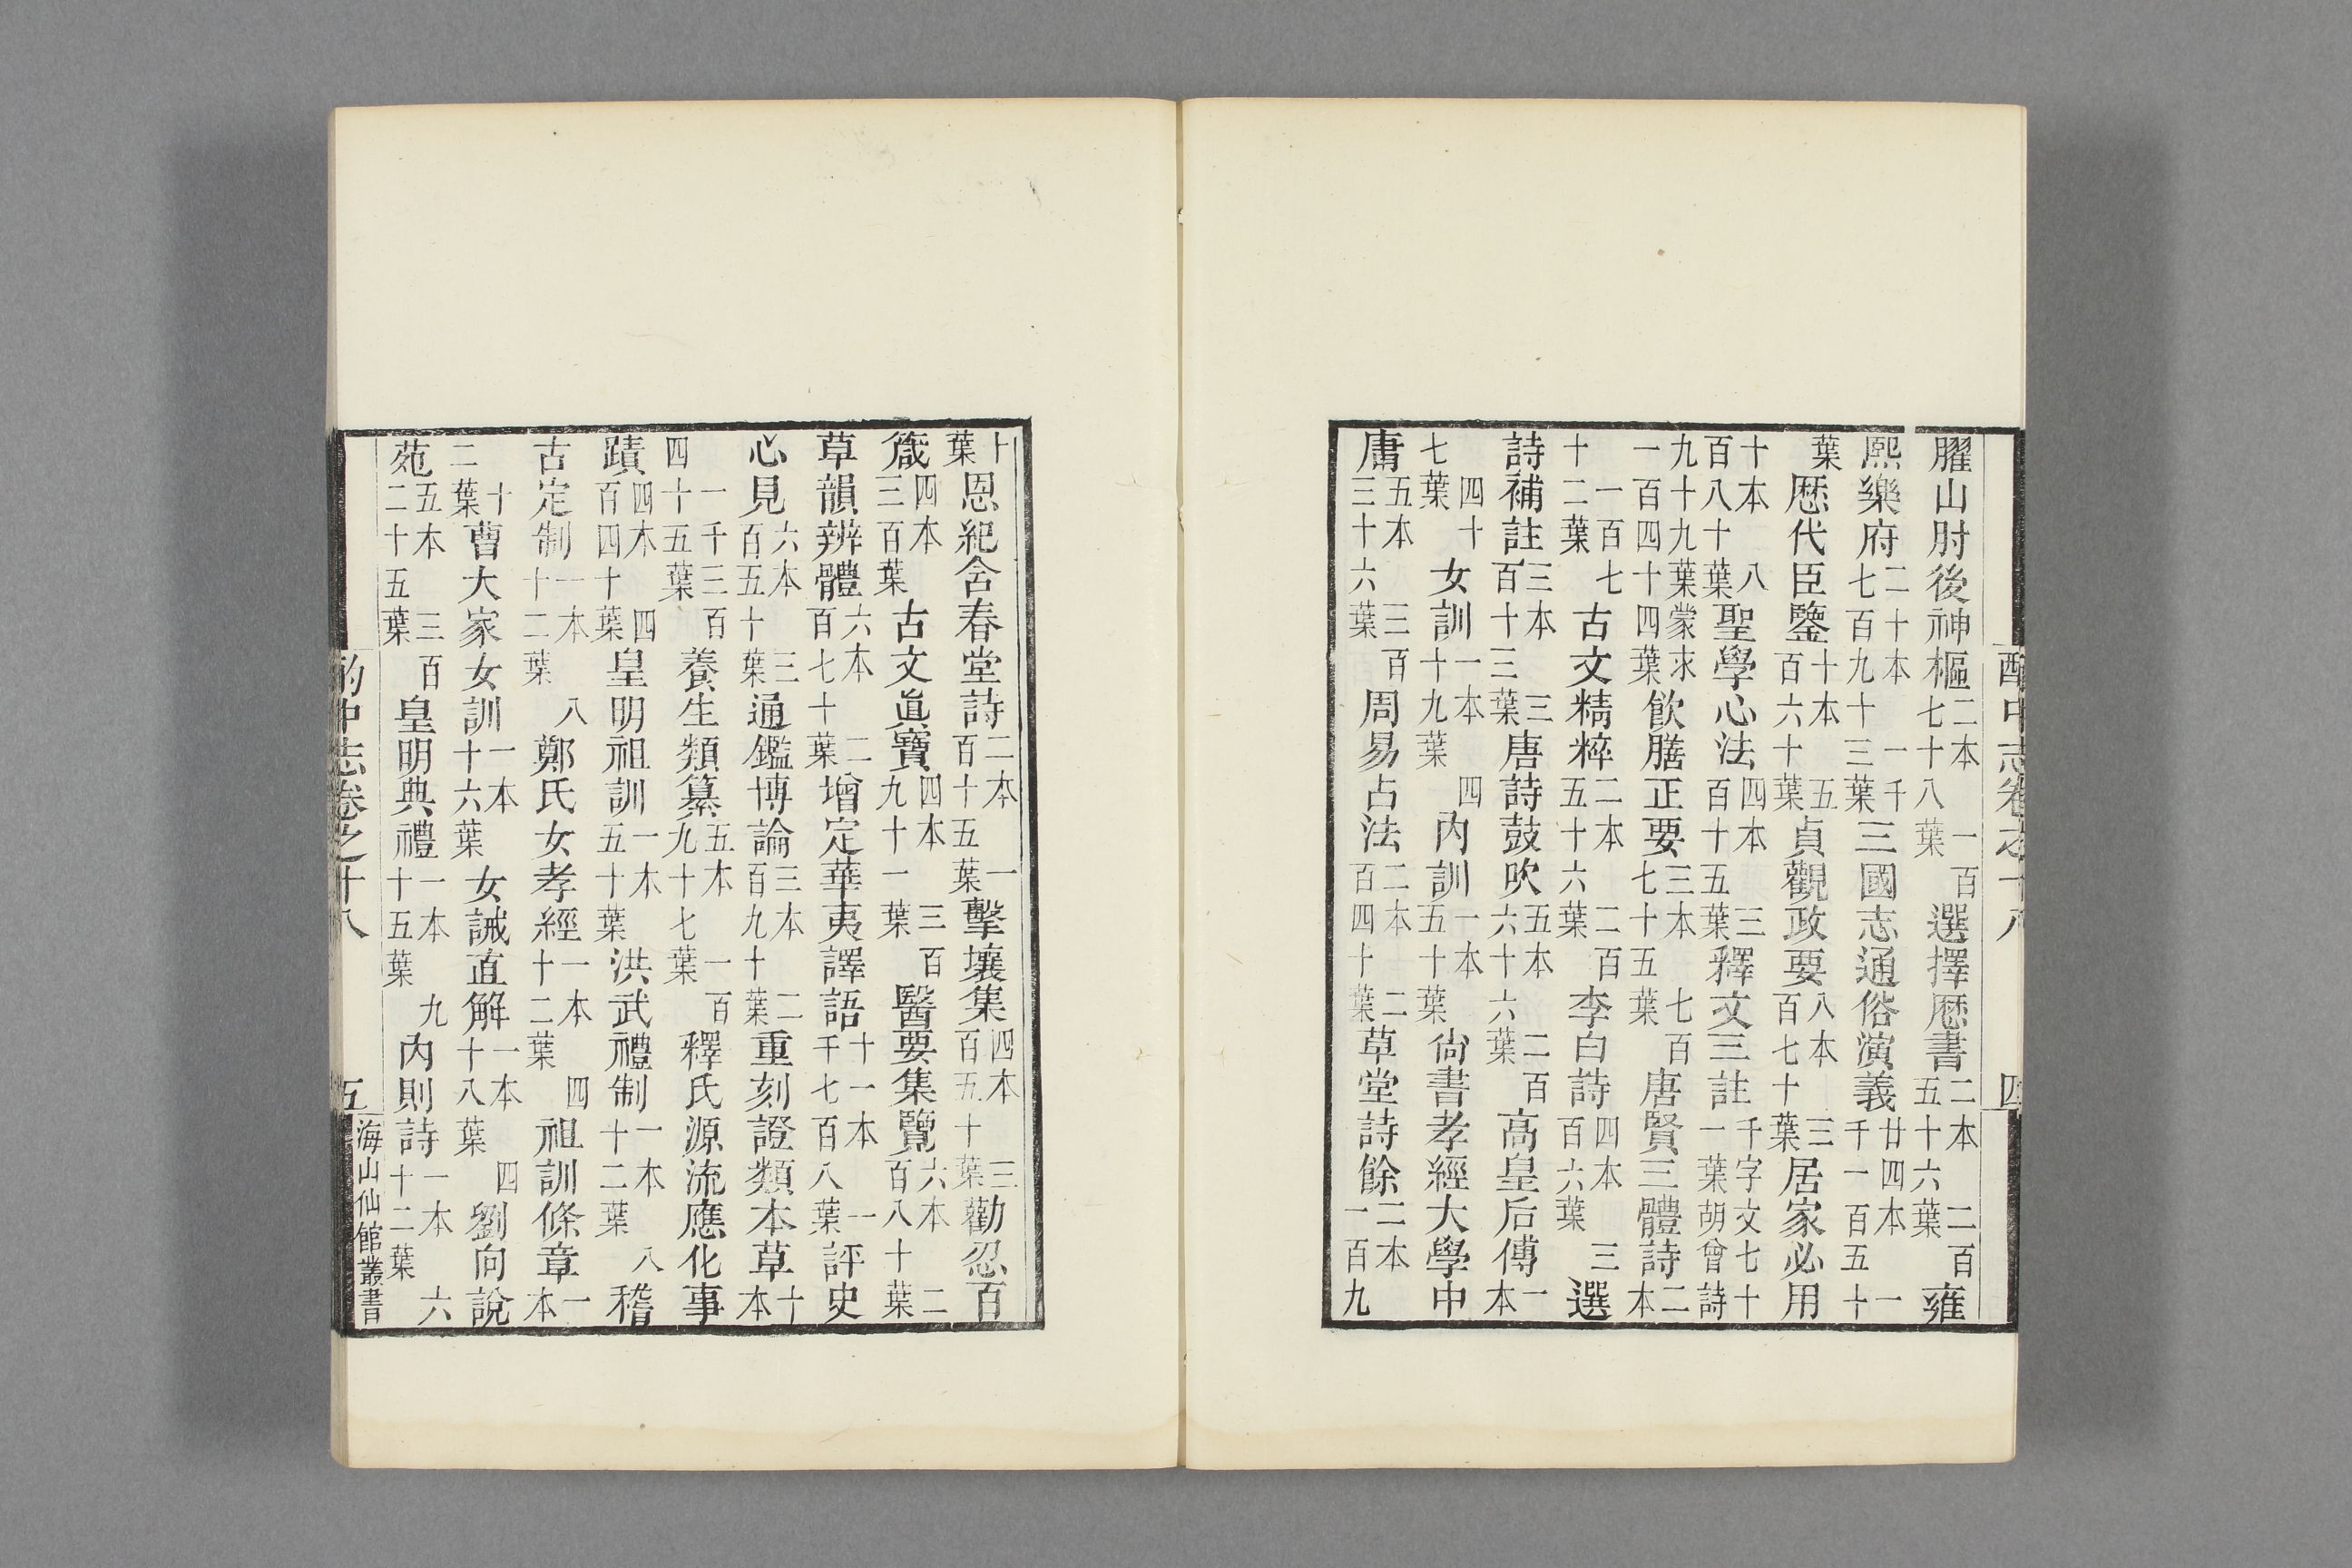 酌中志卷之十八 四
臞山肘後神樞二本一百七十八葉選擇厯書二本二百五十六葉雍
熙樂府二十本一千七百九十三葉三國志通俗演義廿四本一千一百五十
葉厯代臣鑒十本五百六十葉貞觀政要八本三百七十葉居家必用
十本八百八十葉聖學心法四本三百十五葉釋文三註千字文七十一葉胡曾詩
九十九葉蒙求一百四十四葉飲膳正要三本七百七十五葉唐賢三體詩二本
一百七十二葉古文精粹二本二百五十六葉李白詩四本三百六葉選
詩補註三本三百十三葉唐詩鼓吹五本二百六十六葉高皇后傳一本
四十七葉女訓一本四十九葉內訓一本五十葉尙書孝經大學中
庸五本三百三十六葉周易占法二本二百四十葉草堂詩餘二本一百九
十葉恩紀含春堂詩二本一百十五葉擊壤集四本三百五十葉勸忍百
箴四本三百葉古文眞寶四本三百九十一葉醫要集覽六本二百八十葉
草韻辨體六本二百七十葉增定華夷譯語十一本一千七百八葉評史
心見六本三百五十葉通鑑博論三本二百九十葉重刻證類本草十本
一千三百四十五葉養生類纂五本一百九十七葉釋氏源流應化事
蹟四本四百四十葉皇明祖訓一本五十葉洪武禮制一本八十二葉稽
古定制一本八十二葉鄭氏女孝經一本四十二葉祖訓條章一本
十二葉曹大家女訓一本十六葉女誡直解一本四十八葉劉向說
苑五本三百二十五葉皇明典禮一本九十五葉內則詩一本六十二葉
酌中志卷之十八 五 海山仙館叢書